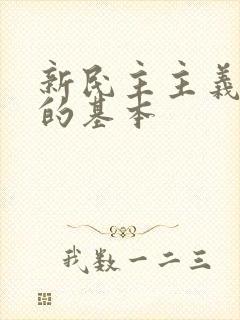 新民主主义
的基本
我数一二三